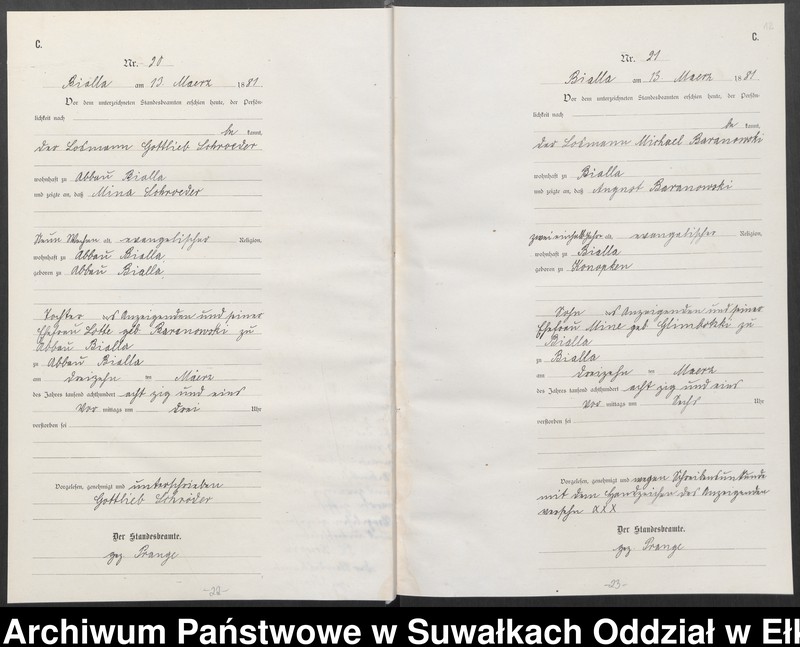 C.
Nr. 20
Bialla am 13 Maerz 1881
Vor dem unterzeichneten Standesbeamten erschien heute, der Persön-
lichkeit nach
be kannt,
der Losmann Gottlieb Schroeder
wohnhaft zu Abbau Bialla
und zeigte an, daß Mina Schroeder
Neun Wochen alt, evangelischer Religion,
wohnhaft zu Abbau Bialla,
geboren zu Abbau Bialla,
Tochter des Anzeigenden und seiner
Ehefrau Lotte geb Baranowski zu
Abbau Bialla
zu Abbau Bialla
am dreizehn ten Maerz
des Jahres tausend achthundert acht zig und eins
Vor mittags um drei Uhr
verstorben sei
Vorgelesen, genehmigt und unterschrieben
Gottlieb Schröder
Der Standesbeamte.
gez Prange
-22-
C.
Nr. 21
Bialla am 13 Maerz 1881
Vor dem unterzeichneten Standesbeamten erschien heute, der Persön-
lichkeit nach
be kannt,
der Losmann Michael Baranowski
wohnhaft zu Bialla
und zeigte an, daß August Baranowski
zwei einhalb Jahr alt, evangelischer Religion,
wohnhaft zu Bialla
geboren zu Konopken
Sohn des Anzeigenden und seiner
Ehefrau Mine geb zu
Bialla
zu Bialla
am dreizehn ten Maerz
des Jahres tausend achthundert acht zig und eins
Vor mittags um Sechs Uhr
verstorben sei
Vorgelesen, genehmigt und wegen Schreibensunkunde
mit dem Handzeichen des Anzeigenden
versehn XXX
Der Standesbeamte.
gez Prange
-23-
Archiwum Państwowe w Suwałkach Oddział w Ełk